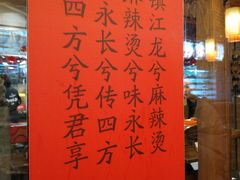 镇江龙兮麻辣烫
麻辣烫兮味永长
永长兮传四方
四方兮凭君享